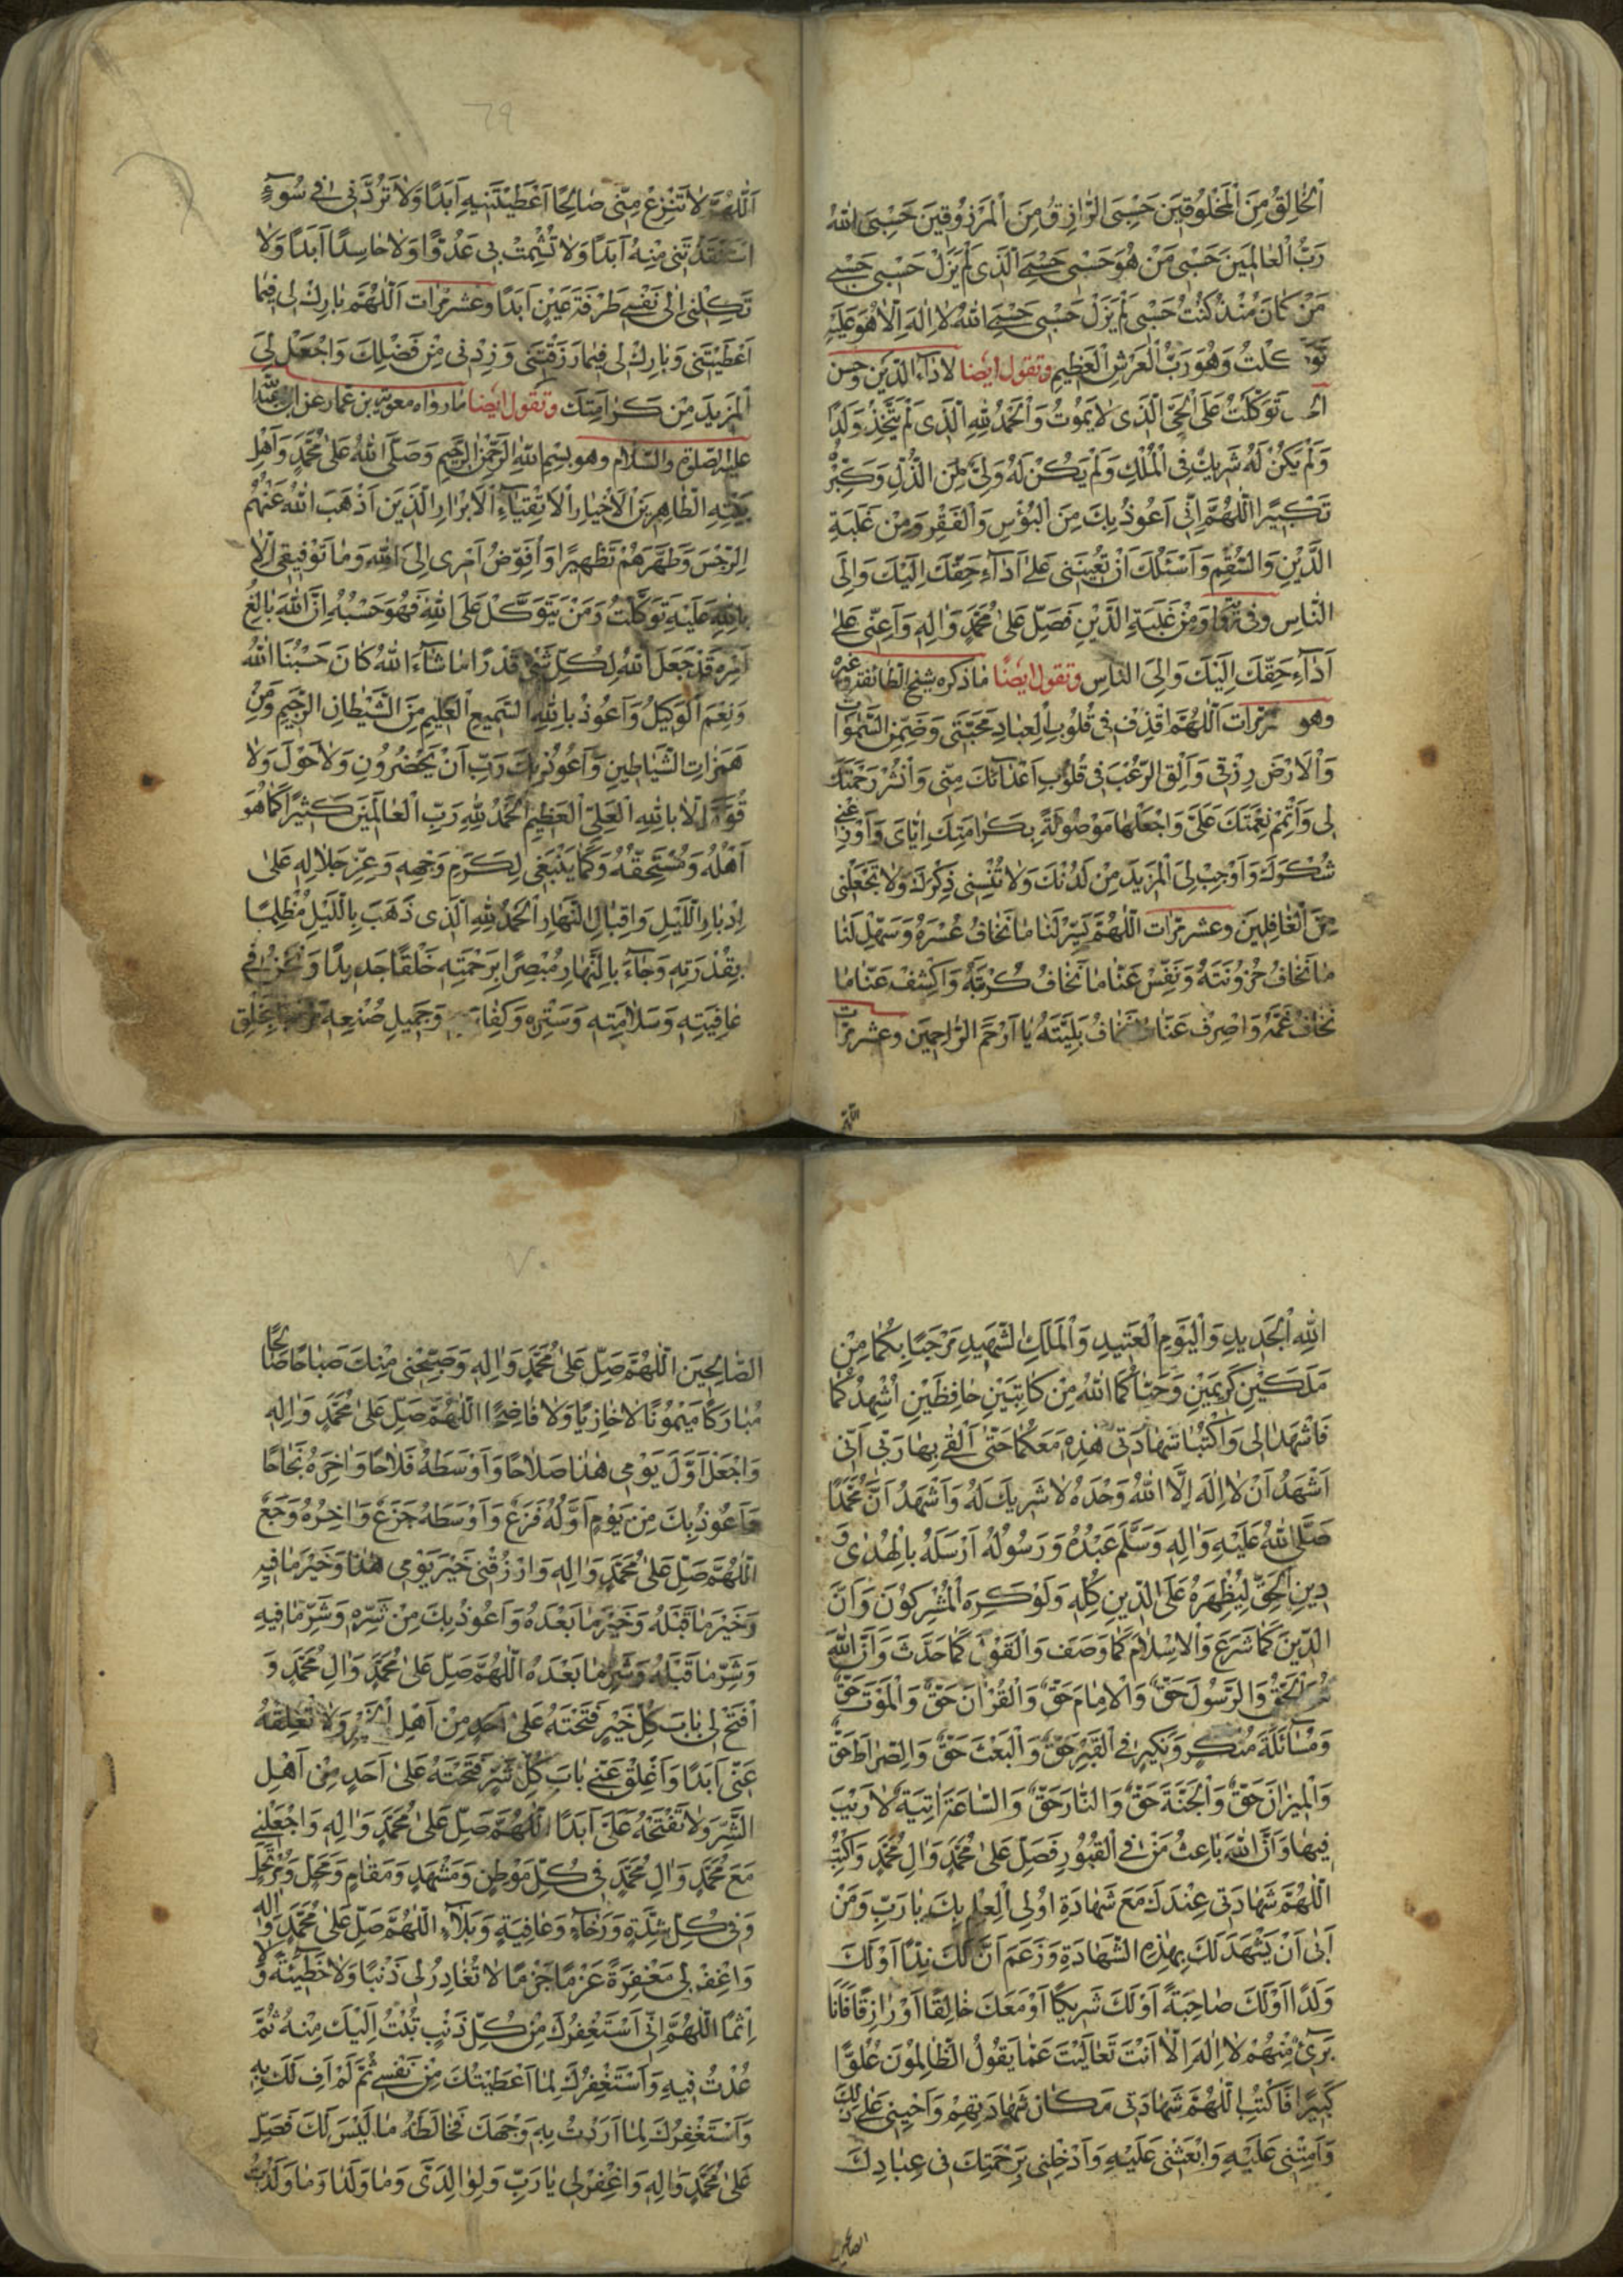 اَلْخَالِقُ مِنَ الْمَخْلُوقِينَ حَسْبِيَ الرَّازِقُ مِنَ الْمَرْزُوقِينَ حَسْبِيَ اللّٰهُ
رَبُّ الْعَالَمِينَ حَسْبِي مَنْ هُوَ حَسْبِي حَسْبِيَ الَّذِي لَمْ يَزَلْ حَسْبِي حَسْبِي
مَنْ كَانَ مُنْذُ كُنْتُ حَسْبِي لَمْ يَزَلْ حَسْبِي حَسْبِيَ اللّٰهُ لَا اِلٰهَ اِلَّا هُوَ عَلَيْهِ
تَوَكَّلْتُ وَهُوَ رَبُّ الْعَرْشِ الْعَظِيمِ وتقول ايضا لِاَدَاءِ الدَّيْنِ وَحُسْنِ
تَوَكَّلْتُ عَلَى الْحَيِّ الَّذِي لَا يَمُوتُ وَالْحَمْدُ لِلّٰهِ الَّذِي لَمْ يَتَّخِذْ وَلَدًا
وَلَمْ يَكُنْ لَهُ شَرِيكٌ فِي الْمُلْكِ وَلَمْ يَكُنْ لَهُ وَلِيٌّ مِنَ الذُّلِّ وَكَبِّرْهُ
تَكْبِيرًا اَللّٰهُمَّ اِنِّي اَعُوذُ بِكَ مِنَ الْبُؤْسِ وَالْفَقْرِ وَمِنْ غَلَبَةِ
الدَّيْنِ وَالسُّقْمِ وَاَسْئَلُكَ اَنْ تُعِينَنِي عَلٰى اَدَاءِ حَقِّكَ اِلَيْكَ وَاِلَى
النَّاسِ وفى وَمِنْ غَلَبَةِ الدَّيْنِ فَصَلِّ عَلٰى مُحَمَّدٍ وَاٰلِهِ وَاَعِنِّي عَلٰى
اَدَاءِ حَقِّكَ اِلَيْكَ وَاِلَى النَّاسِ وتقول ايضا ما ذكره شيخ الطائفة وغيره
وهو مرّات اَللّٰهُمَّ اقْذِفْ فِي قُلُوبِ الْعِبَادِ مَحَبَّتِي وَضَمِّنِ السَّمٰوَاتِ
وَالْاَرْضَ رِزْقِي وَاَلْقِ الرُّعْبَ فِي قُلُوبِ اَعْدَائِكَ مِنِّي وَانْشُرْ رَحْمَتَكَ
لِي وَاَتْمِمْ نِعْمَتَكَ عَلَيَّ وَاجْعَلْهَا مَوْصُولَةً بِكَرَامَتِكَ اِيَّايَ وَاَوْزِعْنِي
شُكْرَكَ وَاَوْجِبْ لِيَ الْمَزِيدَ مِنْ لَدُنْكَ وَلَا تُنْسِنِي ذِكْرَكَ وَلَا تَجْعَلْنِي
مِنَ الْغَافِلِينَ وعشر مرّات اَللّٰهُمَّ يَسِّرْ لَنَا مَا نَخَافُ عُسْرَهُ وَسَهِّلْ لَنَا
مَا نَخَافُ حُزُونَتَهُ وَنَفِّسْ عَنَّا مَا نَخَافُ كُرْبَتَهُ وَاكْشِفْ عَنَّا مَا
نَخَافُ غَمَّهُ وَاصْرِفْ عَنَّا مَا نَخَافُ بَلِيَّتَهُ يَا اَرْحَمَ الرَّاحِمِينَ وعشر مرّات
اللّهمّ
٦٩
اَللّٰهُمَّ لَا تَنْزِعْ مِنِّي صَالِحًا اَعْطَيْتَنِيهِ اَبَدًا وَلَا تَرُدَّنِي فِي سُوءٍ
اسْتَنْقَذْتَنِي مِنْهُ اَبَدًا وَلَا تُشْمِتْ بِي عَدُوًّا وَلَا حَاسِدًا اَبَدًا وَلَا
تَكِلْنِي اِلٰى نَفْسِي طَرْفَةَ عَيْنٍ اَبَدًا وعشر مرّات اَللّٰهُمَّ بَارِكْ لِي فِيمَا
اَعْطَيْتَنِي وَبَارِكْ لِي فِيمَا رَزَقْتَنِي وَزِدْنِي مِنْ فَضْلِكَ وَاجْعَلْ لِيَ
الْمَزِيدَ مِنْ كَرَامَتِكَ وتقول ايضا ما رواه معوية بن عمار عن ابى عبد الله
عليه الصلوة والسلام وهو بِسْمِ اللّٰهِ الرَّحْمٰنِ الرَّحِيمِ وَصَلَّى اللّٰهُ عَلٰى مُحَمَّدٍ وَاَهْلِ
بَيْتِهِ الطَّاهِرِينَ الْاَخْيَارِ الْاَتْقِيَاءِ الْاَبْرَارِ الَّذِينَ اَذْهَبَ اللّٰهُ عَنْهُمُ
الرِّجْسَ وَطَهَّرَهُمْ تَطْهِيرًا وَاُفَوِّضُ اَمْرِي اِلَى اللّٰهِ وَمَا تَوْفِيقِي اِلَّا
بِاللّٰهِ عَلَيْهِ تَوَكَّلْتُ وَمَنْ يَتَوَكَّلْ عَلَى اللّٰهِ فَهُوَ حَسْبُهُ اِنَّ اللّٰهَ بَالِغُ
اَمْرِهِ قَدْ جَعَلَ اللّٰهُ لِكُلِّ شَيْءٍ قَدْرًا مَا شَاءَ اللّٰهُ كَانَ حَسْبُنَا اللّٰهُ
وَنِعْمَ الْوَكِيلُ وَاَعُوذُ بِاللّٰهِ السَّمِيعِ الْعَلِيمِ مِنَ الشَّيْطَانِ الرَّجِيمِ وَمِنْ
هَمَزَاتِ الشَّيَاطِينِ وَاَعُوذُ بِكَ رَبِّ اَنْ يَحْضُرُونِ وَلَا حَوْلَ وَلَا
قُوَّةَ اِلَّا بِاللّٰهِ الْعَلِيِّ الْعَظِيمِ اَلْحَمْدُ لِلّٰهِ رَبِّ الْعَالَمِينَ كَثِيرًا كَمَا هُوَ
اَهْلُهُ وَمُسْتَحِقُّهُ وَكَمَا يَنْبَغِي لِكَرَمِ وَجْهِهِ وَعِزِّ جَلَالِهِ عَلٰى
اِدْبَارِ اللَّيْلِ وَاِقْبَالِ النَّهَارِ اَلْحَمْدُ لِلّٰهِ الَّذِي ذَهَبَ بِاللَّيْلِ مُظْلِمًا
بِقُدْرَتِهِ وَجَاءَ بِالنَّهَارِ مُبْصِرًا بِرَحْمَتِهِ خَلْقًا جَدِيدًا وَنَحْنُ فِي
عَافِيَتِهِ وَسَلَامَتِهِ وَسَتْرِهِ وَكِفَايَتِهِ وَجَمِيلِ صُنْعِهِ مَرْحَبًا بِخَلْقِ
اللّٰهِ الْجَدِيدِ وَالْيَوْمِ الْعَتِيدِ وَالْمَلَكِ الشَّهِيدِ مَرْحَبًا بِكُمَا مِنْ
مَلَكَيْنِ كَرِيمَيْنِ وَحَيَّاكُمَا اللّٰهُ مِنْ كَاتِبَيْنِ حَافِظَيْنِ اُشْهِدُكُمَا
فَاشْهَدَا لِي وَاكْتُبَا شَهَادَتِي هٰذِهِ مَعَكُمَا حَتّٰى اَلْقٰى بِهَا رَبِّي اَنِّي
اَشْهَدُ اَنْ لَا اِلٰهَ اِلَّا اللّٰهُ وَحْدَهُ لَا شَرِيكَ لَهُ وَاَشْهَدُ اَنَّ مُحَمَّدًا
صَلَّى اللّٰهُ عَلَيْهِ وَاٰلِهِ وَسَلَّمَ عَبْدُهُ وَرَسُولُهُ اَرْسَلَهُ بِالْهُدٰى وَ
دِينِ الْحَقِّ لِيُظْهِرَهُ عَلَى الدِّينِ كُلِّهِ وَلَوْ كَرِهَ الْمُشْرِكُونَ وَاَنَّ
الدِّينَ كَمَا شَرَعَ وَالْاِسْلَامَ كَمَا وَصَفَ وَالْقَوْلَ كَمَا حَدَّثَ وَاَنَّ اللّٰهَ
هُوَ الْحَقُّ وَالرَّسُولَ حَقٌّ وَالْاِمَامَ حَقٌّ وَالْقُرْاٰنَ حَقٌّ وَالْمَوْتَ حَقٌّ
وَمُسَائَلَةَ مُنْكَرٍ وَنَكِيرٍ فِي الْقَبْرِ حَقٌّ وَالْبَعْثَ حَقٌّ وَالصِّرَاطَ حَقٌّ
وَالْمِيزَانَ حَقٌّ وَالْجَنَّةَ حَقٌّ وَالنَّارَ حَقٌّ وَالسَّاعَةَ اٰتِيَةٌ لَا رَيْبَ
فِيهَا وَاَنَّ اللّٰهَ بَاعِثُ مَنْ فِي الْقُبُورِ فَصَلِّ عَلٰى مُحَمَّدٍ وَاٰلِ مُحَمَّدٍ وَاكْتُبِ
اللّٰهُمَّ شَهَادَتِي عِنْدَكَ مَعَ شَهَادَةِ اُولِي الْعِلْمِ بِكَ يَا رَبِّ وَمَنْ
اَبٰى اَنْ يَشْهَدَ لَكَ بِهٰذِهِ الشَّهَادَةِ وَزَعَمَ اَنَّ لَكَ نِدًّا اَوْ لَكَ
وَلَدًا اَوْ لَكَ صَاحِبَةً اَوْ لَكَ شَرِيكًا اَوْ مَعَكَ خَالِقًا اَوْ رَازِقًا فَاَنَا
بَرِيءٌ مِنْهُمْ لَا اِلٰهَ اِلَّا اَنْتَ تَعَالَيْتَ عَمَّا يَقُولُ الظَّالِمُونَ عُلُوًّا
كَبِيرًا فَاكْتُبِ اللّٰهُمَّ شَهَادَتِي مَكَانَ شَهَادَتِهِمْ وَاَحْيِنِي عَلٰى ذٰلِكَ
وَاَمِتْنِي عَلَيْهِ وَابْعَثْنِي عَلَيْهِ وَاَدْخِلْنِي بِرَحْمَتِكَ فِي عِبَادِكَ
الصالحين
٧٠
الصَّالِحِينَ اَللّٰهُمَّ صَلِّ عَلٰى مُحَمَّدٍ وَاٰلِهِ وَصَبِّحْنِي مِنْكَ صَبَاحًا صَالِحًا
مُبَارَكًا مَيْمُونًا لَا خَازِيًا وَلَا فَاضِحًا اَللّٰهُمَّ صَلِّ عَلٰى مُحَمَّدٍ وَاٰلِهِ
وَاجْعَلْ اَوَّلَ يَوْمِي هٰذَا صَلَاحًا وَاَوْسَطَهُ فَلَاحًا وَاٰخِرَهُ نَجَاحًا
وَاَعُوذُ بِكَ مِنْ يَوْمٍ اَوَّلُهُ فَزَعٌ وَاَوْسَطُهُ جَزَعٌ وَاٰخِرُهُ وَجَعٌ
اَللّٰهُمَّ صَلِّ عَلٰى مُحَمَّدٍ وَاٰلِهِ وَارْزُقْنِي خَيْرَ يَوْمِي هٰذَا وَخَيْرَ مَا فِيهِ
وَخَيْرَ مَا قَبْلَهُ وَخَيْرَ مَا بَعْدَهُ وَاَعُوذُ بِكَ مِنْ شَرِّهِ وَشَرِّ مَا فِيهِ
وَشَرِّ مَا قَبْلَهُ وَشَرِّ مَا بَعْدَهُ اَللّٰهُمَّ صَلِّ عَلٰى مُحَمَّدٍ وَاٰلِ مُحَمَّدٍ وَ
افْتَحْ لِي بَابَ كُلِّ خَيْرٍ فَتَحْتَهُ عَلٰى اَحَدٍ مِنْ اَهْلِ الْخَيْرِ وَلَا تُغْلِقْهُ
عَنِّي اَبَدًا وَاَغْلِقْ عَنِّي بَابَ كُلِّ شَرٍّ فَتَحْتَهُ عَلٰى اَحَدٍ مِنْ اَهْلِ
الشَّرِّ وَلَا تَفْتَحْهُ عَلَيَّ اَبَدًا اَللّٰهُمَّ صَلِّ عَلٰى مُحَمَّدٍ وَاٰلِهِ وَاجْعَلْنِي
مَعَ مُحَمَّدٍ وَاٰلِ مُحَمَّدٍ فِي كُلِّ مَوْطِنٍ وَمَشْهَدٍ وَمَقَامٍ وَمَحَلٍّ وَمُرْتَحَلٍ
وَفِي كُلِّ شِدَّةٍ وَرَخَاءٍ وَعَافِيَةٍ وَبَلَاءٍ اَللّٰهُمَّ صَلِّ عَلٰى مُحَمَّدٍ وَاٰلِهِ
وَاغْفِرْ لِي مَغْفِرَةً عَزْمًا جَزْمًا لَا تُغَادِرُ لِي ذَنْبًا وَلَا خَطِيئَةً وَلَا
اِثْمًا اَللّٰهُمَّ اِنِّي اَسْتَغْفِرُكَ مِنْ كُلِّ ذَنْبٍ تُبْتُ اِلَيْكَ مِنْهُ ثُمَّ
عُدْتُ فِيهِ وَاَسْتَغْفِرُكَ لِمَا اَعْطَيْتُكَ مِنْ نَفْسِي ثُمَّ لَمْ اَفِ لَكَ بِهِ
وَاَسْتَغْفِرُكَ لِمَا اَرَدْتُ بِهِ وَجْهَكَ فَخَالَطَهُ مَا لَيْسَ لَكَ فَصَلِّ
عَلٰى مُحَمَّدٍ وَاٰلِهِ وَاغْفِرْ لِي يَا رَبِّ وَلِوَالِدَيَّ وَمَا وَلَدَا وَمَا وَلَدْتُ